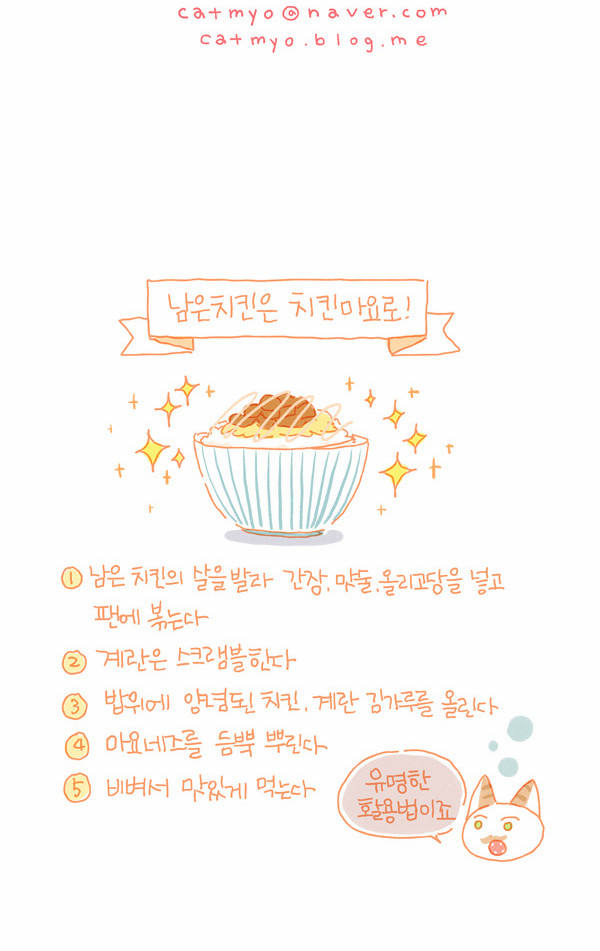 catmyo@naver.com
catmyo.blog.me
남은치킨은 치킨마요로!
① 남은 치킨의 살을발라 간장, 맛술, 올리고당을 넣고
팬에 볶는다
② 계란은 스크램블한다
③ 밥위에 양념된 치킨, 계란 김가루를 올린다
④ 마요네즈를 듬뿍 뿌린다
⑤ 비벼서 맛있게 먹는다
유명한
활용법이죠